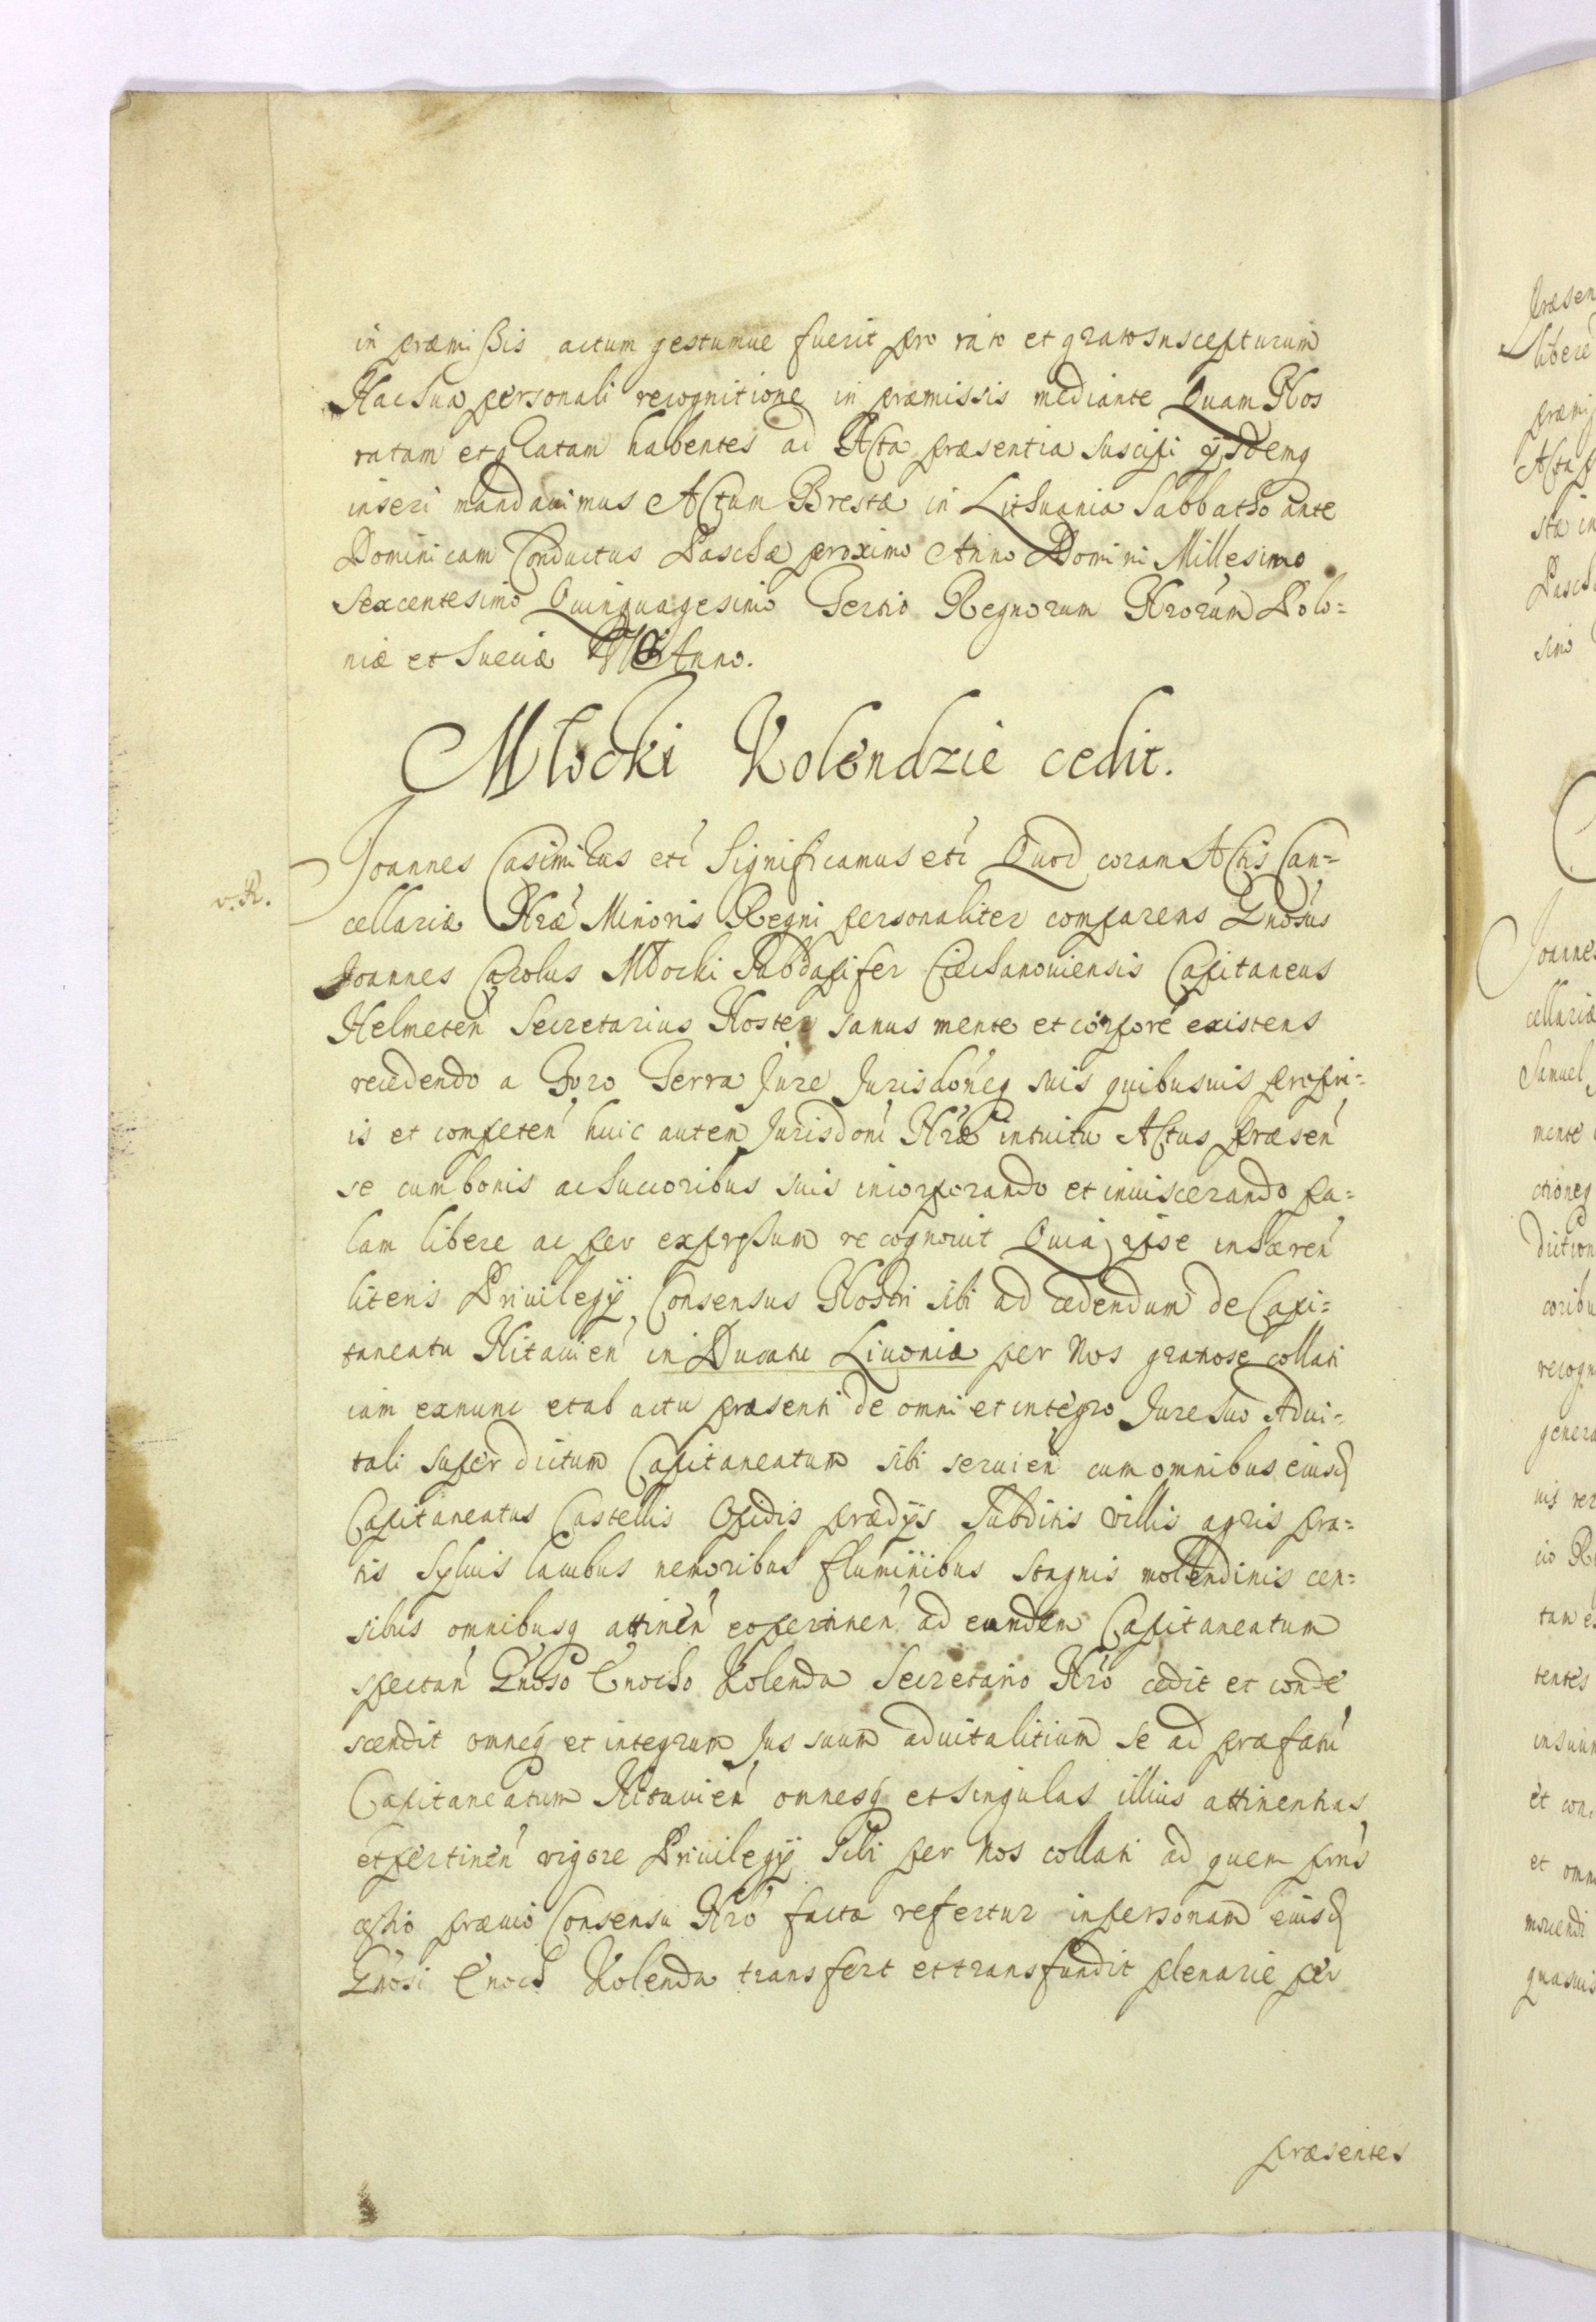 in præmißis actum gestumue fuerit pro rato et grato suscepturum
Hac sua personali recognitione in præmissis mediante Quam Nos
ratam et gratam habentes ad Acta præsentia suscipi ijsdemq
inseri mandauimus Actum Brestæ in Lithuania Sabbatho ante
Dominicam Conductus Paschæ proximo Anno Domini Millesimo
Sexcentesimo Quinquagesimo Tertio Regnorum Nrorum Polo=
niæ et Sueciæ Anno.
Młocki Kolendzie cedit.
Joannes Casimirus etc Significamus etc Quod coram Actis Can=
v. R.
cellariæ Nræ Minoris Regni personaliter comparens Gnosus
Joannes Carolus Młocki Subdapifer Ciechanouiensis Capitaneus
Helmeten Secretarius Noster sanus mente et corpore existens
recedendo a Foro Terra Jure Jurisdoneq suis quibusuis propri=
is et competen huic autem Jurisdoni Nræ intuitu Actus præsen
se cum bonis ac Succoribus suis incorporando et inuiscerando pa=
lam libere ac per expressum recognouit Quia ipse inhæren
literis Priuilegij Consensus Nostri sibi ad cedendum de Capi=
taneatu Nitauien in Ducatu Liuoniæ per Nos gratiose collati
iam exnunc et ab actu præsenti de omni et integro Jure suo Adui=
tali super dictum Capitaneatum sibi seruien cum omnibus eiusd
Capitaneatus Castellis Opidis prædijs Subditis villis agris pra=
tis Syluis lacubus nemoribus fluminibus Stagnis molendinis cen=
sibus omnibusq attinen et pertinen ad eundem Capitaneatum
spectan Gnoso Enocho Kolenda Secretario Nro cedit et conde
scendit omneq et integrum Jus suum aduitalitium se ad præfatu
Capitaneatum Nitauien omnesq et singulas illius attinentias
et pertinen vigore Priuilegij Sibi per Nos collati ad quem prns
cessio præuio Consensu Nro facta refertur in personam eiusd
Gnosi Enoch Kolenda transfert et transfundit plenarie per
præsentes